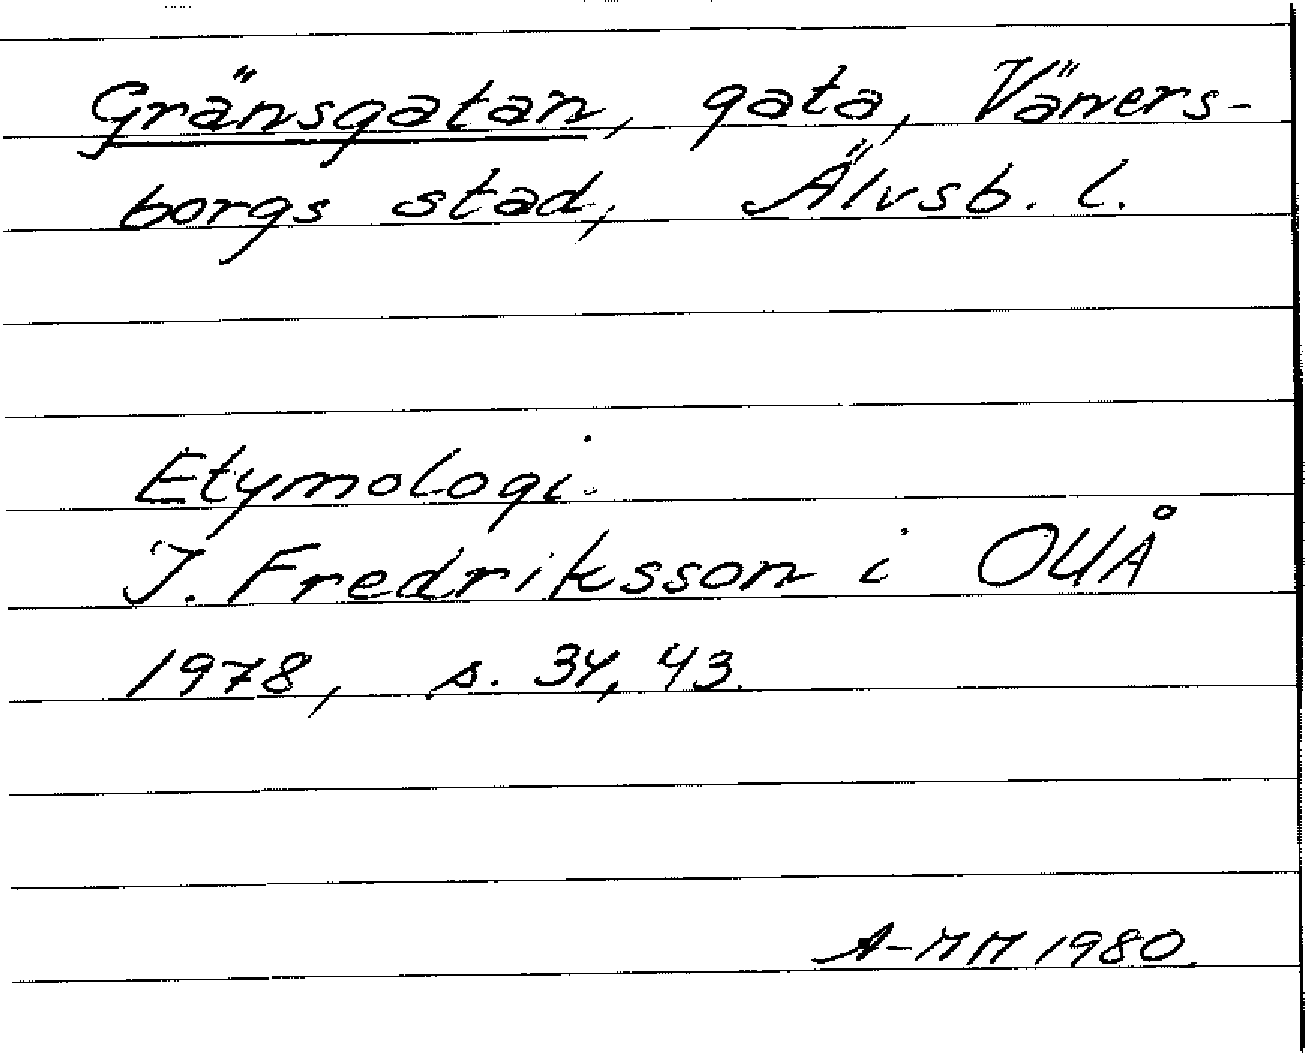 Gränsgatan, gata, Väners-
borgs stad, Älvsb. l.
Etymologi.
I. Fredriksson i OUÅ
1978, s. 34, 43.
A-MM 1980